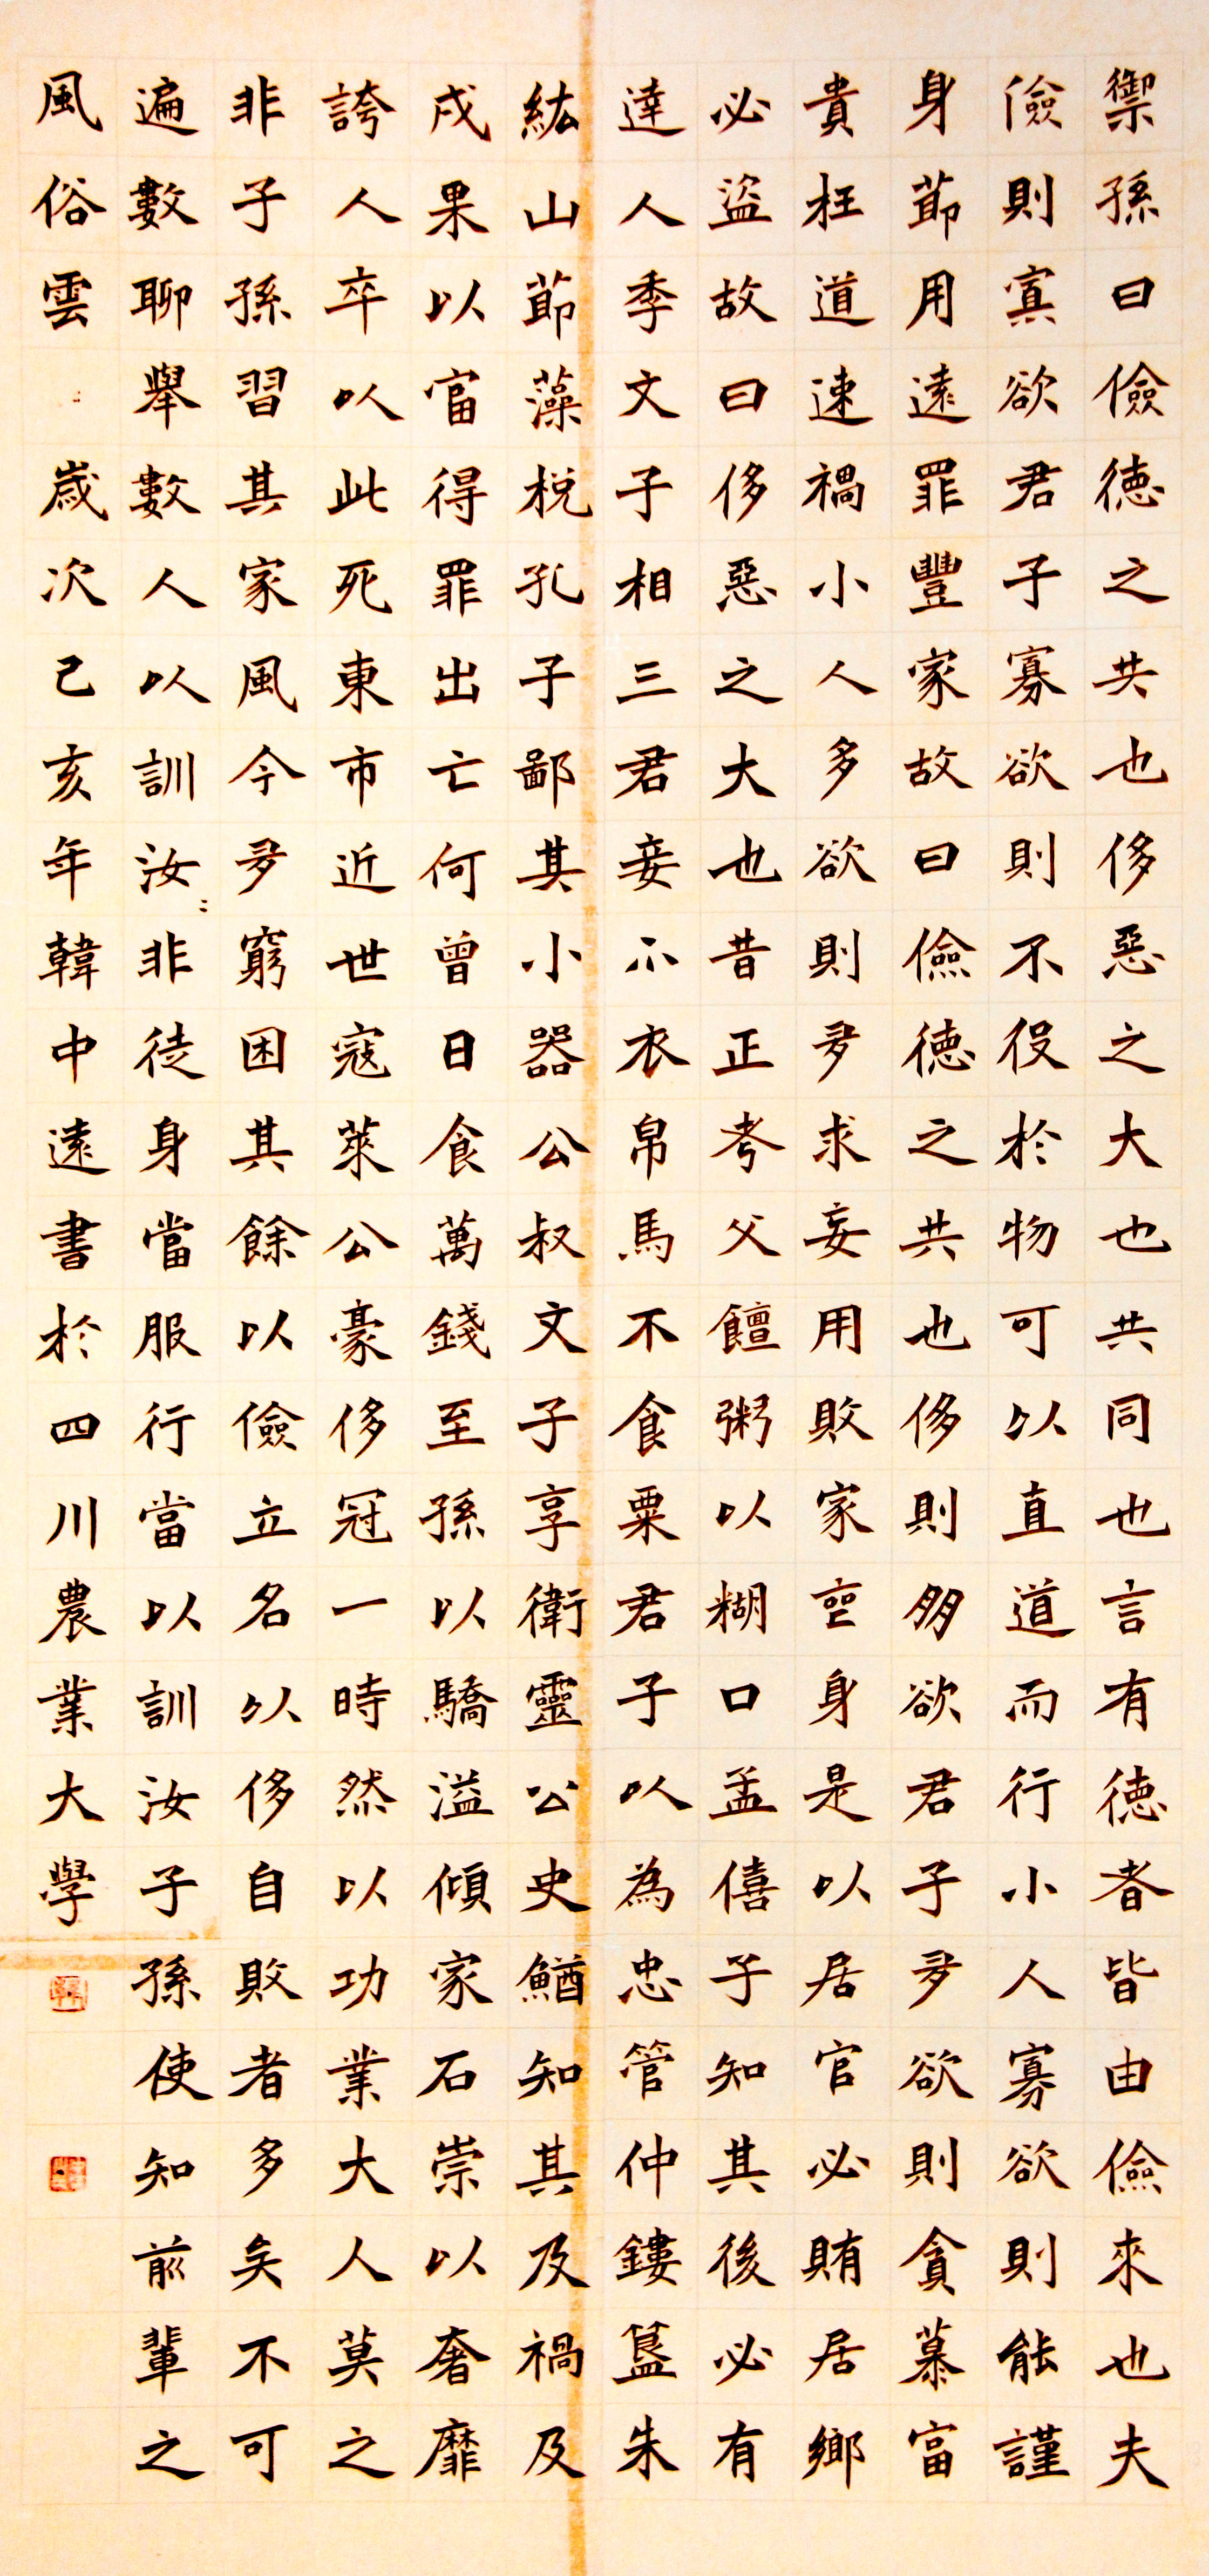 禦孫曰儉徳之共也侈惡之大也共同也言有徳者皆由儉來也夫
儉則寡欲君子寡欲則不役於物可以直道而行小人寡欲則能謹
身節用遠罪豐家故曰儉徳之共也侈則多欲君子多欲則貪慕富
貴枉道速禍小人多欲則多求妄用敗家喪身是以居官必賄居鄉
必盜故曰侈惡之大也昔正考父饘粥以糊口孟僖子知其後必有
達人季文子相三君妾不衣帛馬不食粟君子以為忠管仲鏤簋朱
紘山節藻梲孔子鄙其小器公叔文子享衛靈公史鰌知其及禍及
戌果以富得罪出亡何曾日食萬錢至孫以驕溢傾家石崇以奢靡
誇人卒以此死東市近世寇萊公豪侈冠一時然以功業大人莫之
非子孫習其家風今多窮困其餘以儉立名以侈自敗者多矣不可
遍數聊舉數人以訓汝非徒身當服行當以訓汝子孫使知前輩之
風俗雲 歲次己亥年韓中遠書於四川農業大學